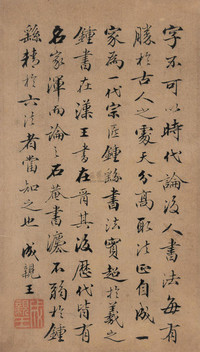 字不可以時代論後人書法每有
勝於古人之處天分高取法正自成一
家為一代宗匠鍾繇書法實超於羲之
鍾書在漢王書在晉其後歷代皆有
名家渾而論之石菴書瀍不弱於鍾
繇精於六法者當知之也 成親王